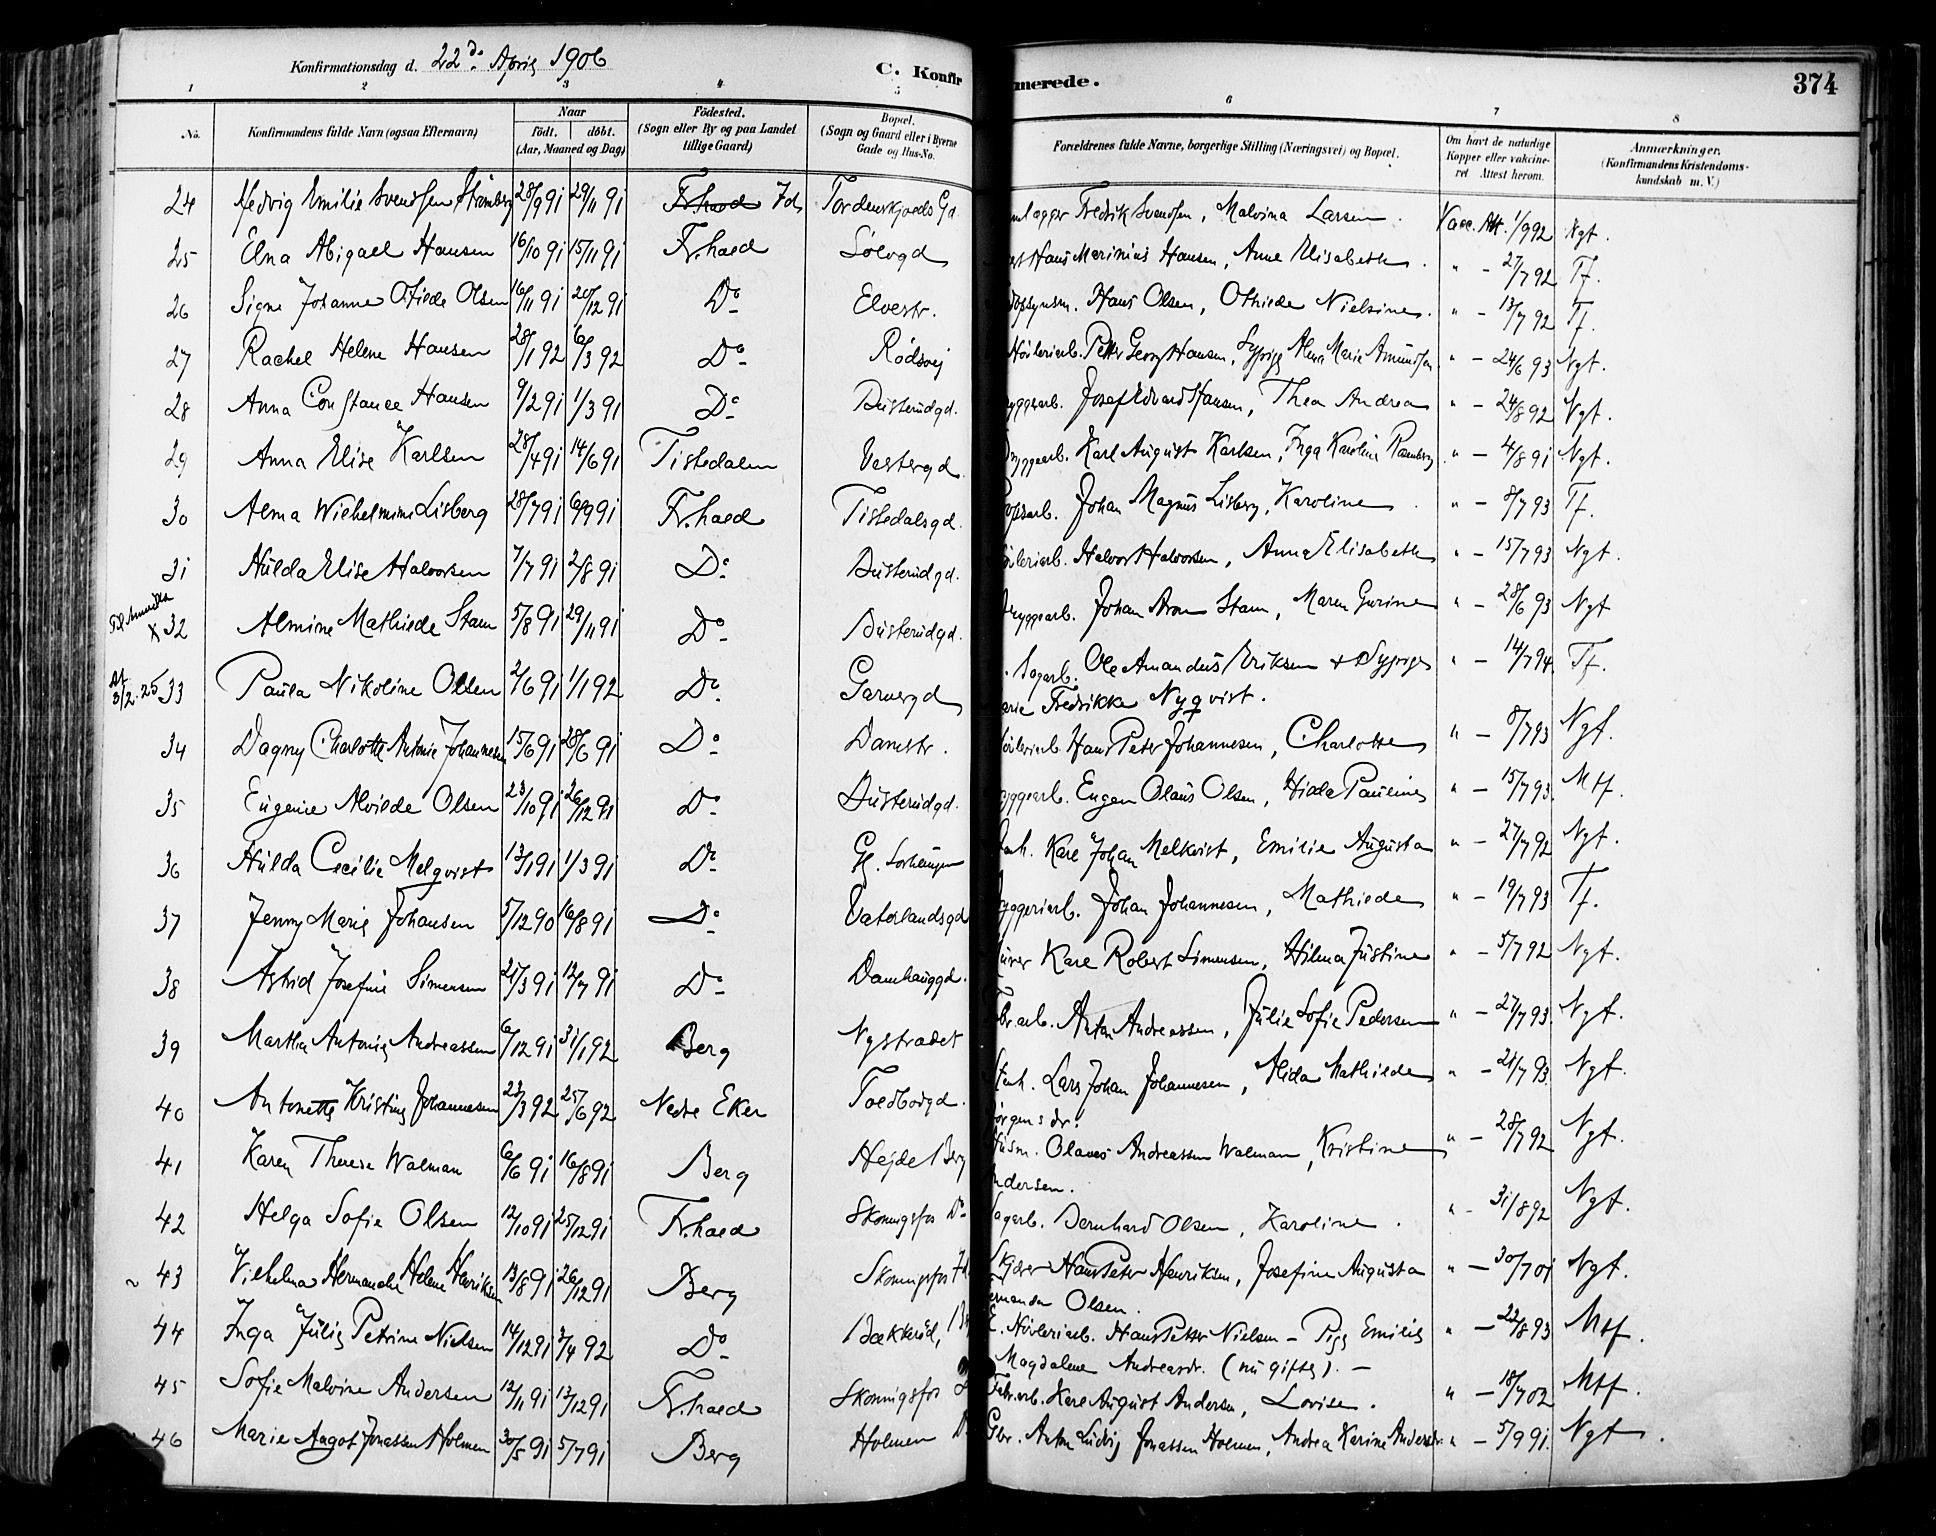 Konfirmationsdag d. 22d. April 1906
C. Konfirmerede.
374
1 2 3 4 5 6 7 8
No.
Konfirmandens fulde Navn (ogsaa Efternavn)
Naar
födt. döbt.
(Aar, Maaned og Dag)
Födested.
(Sogn eller By og paa Landet tillige Gaard)
Bopæl.
(Sogn og Gaard eller i Byerne Gade og Hus-No.
Forældrenes fulde Navne, borgerlige Stilling (Næringsvei) og Bopæl.
Om havt de naturlige Kopper eller vakcineret Attest herom.
Anmærkninger.
(Konfirmandens Kristendomskundskab m. V.)
24 Hedvig Emilie Svendsen 28/9 91 29/11 91 Fr.hald Ids Tordenskjolds Gd Fredrik Svendsen, Malvina Larsen. Vacc. Att. 1/9 92 Ngt.
25 Elna Abigael Hansen 16/10 91 15/11 91 Fr.hald Sölvgd Hans Marinius Hansen, Anne Elisabeth. " - 27/7 92 Tf.
26 Signe Johanne Otilde Olsen 16/11 91 20/12 91 Do Elvestr. Hans Olsen, Othilde Nielsine. " - 13/7 92 Tf.
27 Rachel Helene Hansen 28/1 92 6/3 92 Do Rödsvej Hövleriarb. Petter Georg Hansen, Alma Marie Amundsen " - 24/6 93 Ngt.
28 Anna Constance Hansen 9/2 91 1/3 91 Do Busterudgd. Josef Edvard Hansen, Thea Andrea " - 24/8 92 Ngt.
29 Anna Elise Karlsen 28/4 91 14/6 91 Tistedalen Vestergd Karl August Karlsen, Inga Karoline Rosenberg " - 4/8 91 Ngt.
30 Alma Wilhelmine Lisberg 28/7 91 6/9 91 Fr.hald Tistedalsgd. Johan Magnus Lisberg, Karoline. " - 8/7 93 Tf.
31 Hulda Elise Halvorsen 7/7 91 2/8 91 Do Busterudgd. Halvor Halvorsen, Anna Elisabeth " - 15/7 93 Ngt.
Til Amerika x 32 Almine Mathilde Stam 5/8 91 29/11 91 Do Busterudgd. Johan Aron Stam, Maren Gurine " - 28/6 93 Ngt
At 3/2.25 33 Paula Nikoline Olsen 2/6 91 1/1 92 Do Garvergd Sagarb. Ole Amandus Eriksen
Fredrikke Nyqvist. " - 14/7 94 Tf.
34 Dagny Charlotte Antonie Johannesen 15/6 91 28/6 91 Do Damstr. Hans Peter Johannesen, Charlotte " - 8/7 93 Ngt.
35 Eugenie Alvilde Olsen 23/10 91 26/12 91 Do Busterudgd. Eugen Olaus Olsen, Hilda Pauline " - 15/7 93. Mtf.
36 Hulda Cecilie Melqvist 13/1 91 1/3 91 Do Karl Johan Melkvist, Emilie Augusta " - 27/7 92 Ngt.
37 Jenny Marie Johansen 5/12 90 16/8 91 Do Vaterlandsgd Johan Johannesen, Mathilde " - 19/7 93 Tf.
38 Astrid Josefine Simensen 21/3 91 12/7 91 Do Damhauggd. Karl Robert Simensen, Hilma Justine " - 5/7 92 Ngt.
39 Martha Antonie Andreassen 6/12 91 31/1 92 Berg Nystrædet Anton Andreassen, Julie Sofie Pedersen " - 27/7 93. Ngt.
40 Antonette Kristine Johannesen 23/3 92 25/6 92 Nedre Eker Toldbodgd. Lars Johan Johannesen, Alida Mathilde
Jörgensdr. " - 21/7 93 Ngt.
41 Karen Therese Walman 6/6 91 16/8 91 Berg Hejde Berg Husm. Olaves Andreassen Walman, Kristine
Andersen. " - 28/7 92 Ngt.
42 Helga Sofie Olsen 12/10 91 25/12 91 Fr.hald Skonningsfos Do Sagarb. Bernhard Olsen, Karoline. " - 31/8 92 Ngt.
43 Vilhelma Hermande Helene Henriksen 13/8 91 26/12 91 Berg Skonningsfos Ids Hans Peter Henriksen, Josefine Augusta
Olsen. " - 30/7 01 Ngt.
44 Inga Julie Petrine Nielsen 14/12 91 3/4 92 Do Bækkerud, Hövleriarb. Hans Petter Nielsen - Pige Emilie
Magdalene Andreasdr. (nu gifte). - " - 22/8 93 Mtf.
45 Sofie Malvine Andersen 12/11 91 13/12 91 Fr.hald Skonningsfos Fabr.arb. Karl August Andersen, Lovise. " - 18/7 02 Mtf.
46 Marie Aagot Jonassen Holmen 30/5 91 5/7 91 Berg Holmen Gbr. Anton Ludvig Jonassen Holmen, Andrea Karine Andersdr. " - 5/9 91. Ngt.